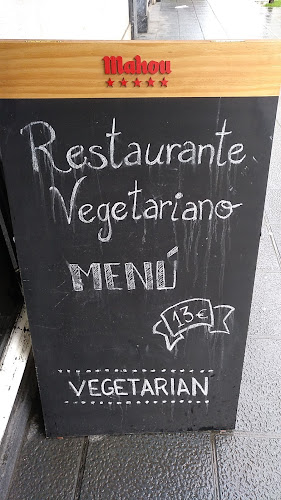 Mahou
Restaurante
Vegetariano
MENÚ
13€
VEGETARIAN